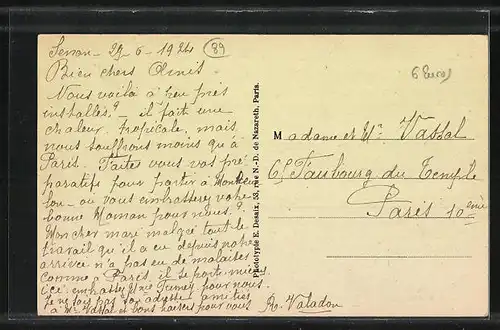 29-6-1924
89
6 Euros
Bien chers Amis
Nous voilà à peu près
installés? - il fait une
chaleur tropicale, mais
nous souffrons moins qu'à
Paris. Faite vous vos pré
paratifs pour partir à
ou vous embrasserez votre
bonne Maman pour nous?
Mon cher mari malgré tout le
travail qu'il a eu depuis notre
arrivée n'a pas eu de malaises
comme à Paris, il se porte mieux
ici. embrassez Mme pour nous
je ne sais pas son adresse amitiés
à Mr Vassal et bons baisers pour vous
R. Valadon
Phototypie E. Desaix, 53, rue N.-D. de Nazareth, Paris.
Madame et Mr Vassal
Faubourg du Temple
Paris 10ème